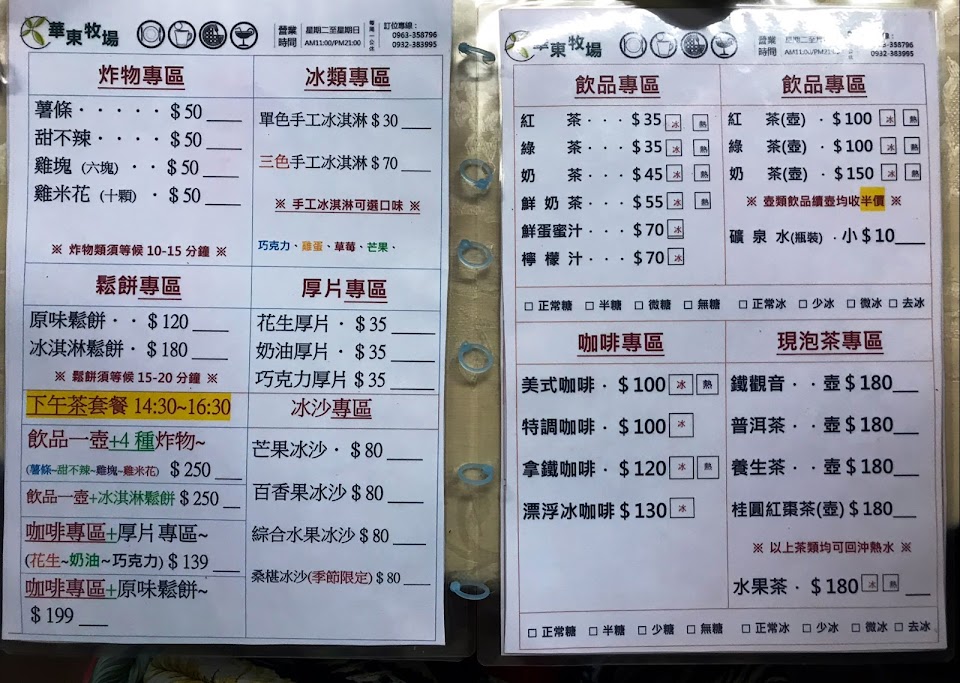 華東牧場
營業時間 星期二至星期日 AM11:00/PM21:00
每周一公休
訂位專線:
0963-358796
0932-383995
炸物專區
薯條・・・・・$50 ___
甜不辣・・・・$50 ___
雞塊 (六塊) ・・$50 ___
雞米花 (十顆) ・$50 ___
※ 炸物類須等候 10-15 分鐘 ※
冰類專區
單色手工冰淇淋 $30 ___
三色手工冰淇淋 $70 ___
※ 手工冰淇淋可選口味 ※
巧克力、雞蛋、草莓、芒果、
鬆餅專區
原味鬆餅・・$120 ___
冰淇淋鬆餅・$180 ___
※ 鬆餅須等候 15-20 分鐘 ※
厚片專區
花生厚片・$35 ___
奶油厚片・$35 ___
巧克力厚片 $35 ___
下午茶套餐 14:30~16:30
飲品一壺+4 種炸物~
(薯條~甜不辣~雞塊~雞米花) $250 ___
飲品一壺+冰淇淋鬆餅 $250 __
咖啡專區+厚片專區~
(花生~奶油~巧克力) $139 ___
咖啡專區+原味鬆餅~
$199 ___
冰沙專區
芒果冰沙・$80 ___
百香果冰沙・$80 ___
綜合水果冰沙・$80 ___
桑椹冰沙(季節限定) $80 ___
華東牧場
營業時間 星期二至星期日 AM11:00/PM21:00
休
線:
63-358796
0932-383995
飲品專區
紅 茶・・・$35 冰 熱
綠 茶・・・$35 冰 熱
奶 茶・・・$45 冰 熱
鮮 奶 茶・・・$55 冰 熱
鮮蛋蜜汁・・・$70 冰
檸 檬 汁・・・$70 冰
飲品專區
紅 茶(壺)・$100 冰 熱
綠 茶(壺)・$100 冰 熱
奶 茶(壺)・$150 冰 熱
※ 壺類飲品續壺均收半價 ※
礦 泉 水(瓶裝)・小 $10___
□ 正常糖 □ 半糖 □ 微糖 □ 無糖 □ 正常冰 □ 少冰 □ 微冰 □ 去冰
咖啡專區
美式咖啡・$100 冰 熱
特調咖啡・$100 冰
拿鐵咖啡・$120 冰 熱
漂浮冰咖啡 $130 冰
現泡茶專區
鐵觀音・・壺 $180___
普洱茶・・壺 $180___
養生茶・・壺 $180___
桂圓紅棗茶(壺) $180___
※ 以上茶類均可回沖熱水 ※
水果茶・・$180 冰 熱 ___
□ 正常糖 □ 半糖 □ 少糖 □ 無糖 □ 正常冰 □ 少冰 □ 微冰 □ 去冰